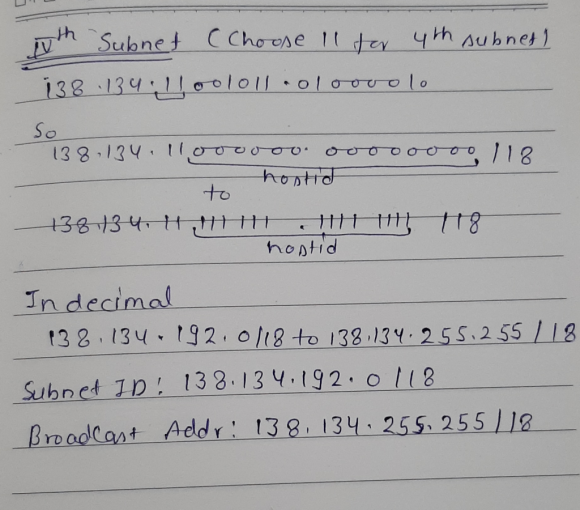 IVth Subnet (Choose 11 for 4th subnet)
138.134.11001011.01000010
So
138.134.11000000.00000000, /18
hostid
to
138.134.11 111 111 . 1111 1111, /18
hostid
In decimal
138.134.192.0/18 to 138.134.255.255/18
Subnet ID: 138.134.192.0/18
Broadcast Addr: 138.134.255.255/18